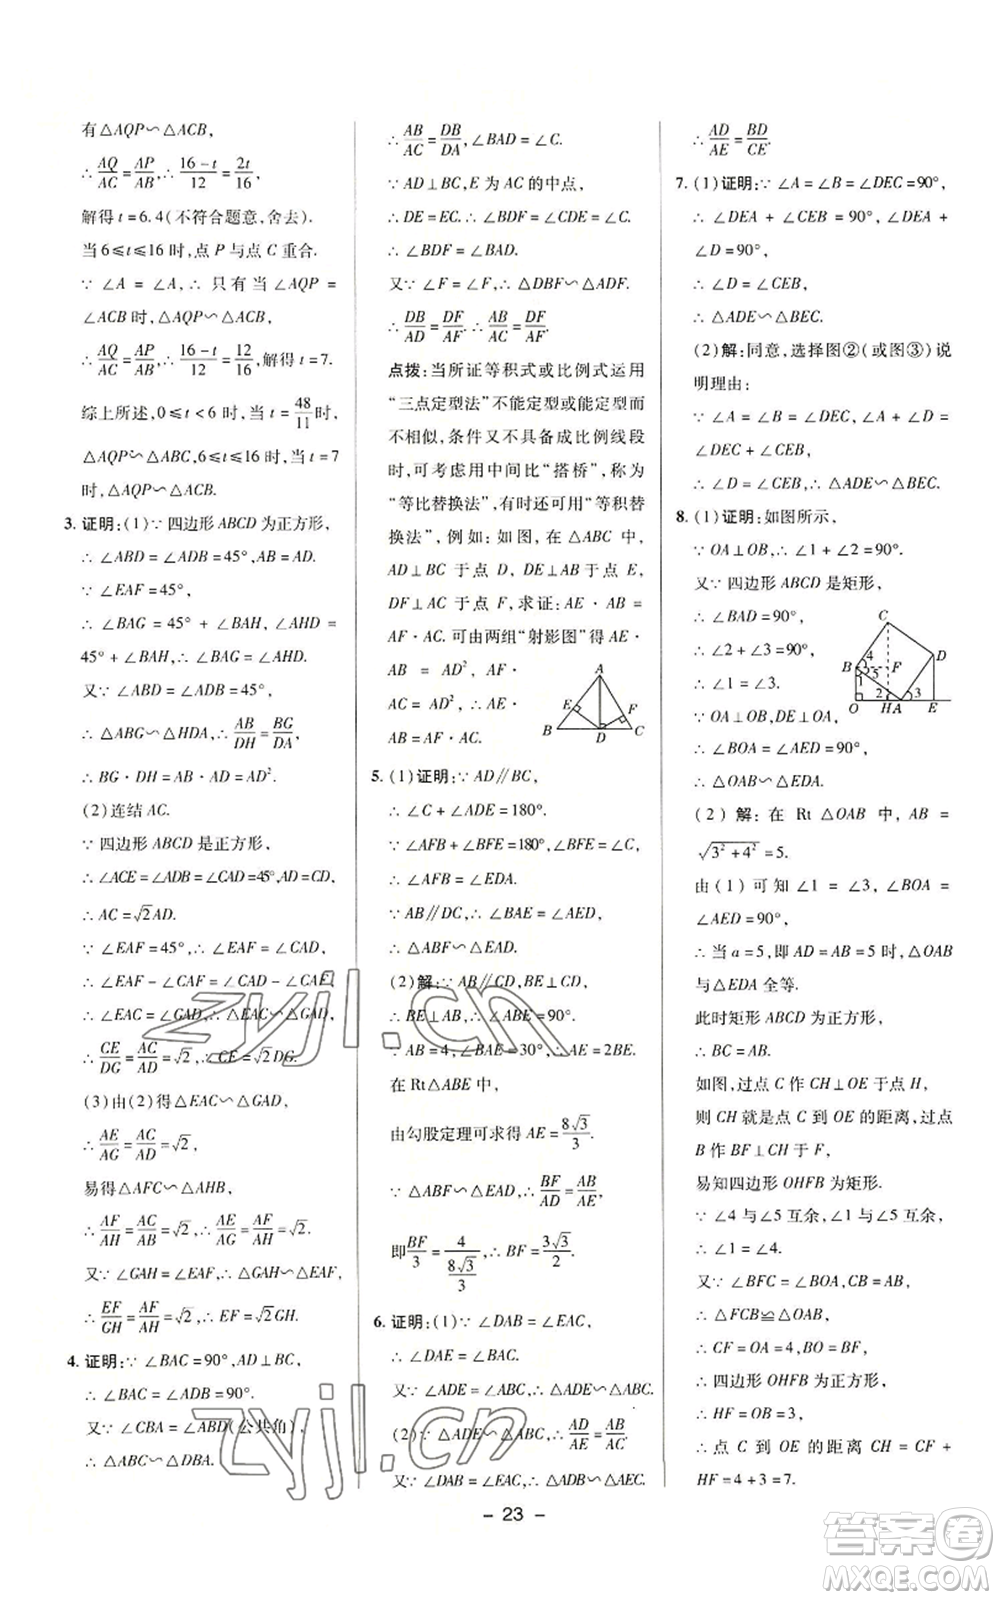 有△AQP∽△ACB,
∴ AQ/AC = AP/AB, ∴ (16-t)/12 = 2t/16,
解得 t = 6.4(不符合题意,舍去).
当 6≤t≤16 时,点 P 与点 C 重合.
∵ ∠A = ∠A, ∴ 只有当 ∠AQP =
∠ACB 时,△AQP∽△ACB,
∴ AQ/AC = AP/AB, ∴ (16-t)/12 = 12/16, 解得 t = 7.
综上所述,0≤t<6 时,当 t = 48/11 时,
△AQP∽△ABC,6≤t≤16 时,当 t = 7
时,△AQP∽△ACB.
3. 证明:(1)∵ 四边形 ABCD 为正方形,
∴ ∠ABD = ∠ADB = 45°,AB = AD.
∵ ∠EAF = 45°,
∴ ∠BAG = 45° + ∠BAH, ∠AHD =
45° + ∠BAH, ∴ ∠BAG = ∠AHD.
又∵ ∠ABD = ∠ADB = 45°,
∴ △ABG∽△HDA, ∴ AB/DH = BG/DA,
∴ BG·DH = AB·AD = AB².
(2)连结 AC.
∵ 四边形 ABCD 是正方形,
∴ ∠ACE = ∠ADB = ∠CAD = 45°,AD = CD,
∴ AC = √2AD.
∵ ∠EAF = 45°, ∴ ∠EAF = ∠CAD,
∴ ∠EAF − ∠CAF = ∠CAD − ∠CAF,
∴ ∠EAC = ∠GAD, ∴ △EAC∽△GAD,
∴ CE/DG = AC/AD = √2, ∴ CE = √2DG.
(3)由(2)得△EAC∽△GAD,
∴ AE/AG = AC/AD = √2.
易得△AFC∽△AHB,
∴ AF/AH = AC/AB = √2, ∴ AE/AG = AF/AH = √2.
又∵ ∠GAH = ∠EAF, ∴ △GAH∽△EAF,
∴ EF/GH = AF/AH = √2, ∴ EF = √2GH.
4. 证明:∵ ∠BAC = 90°,AD⊥BC,
∴ ∠BAC = ∠ADB = 90°.
又∵ ∠CBA = ∠ABD(公共角),
∴ △ABC∽△DBA.
∴ AB/AC = DB/DA, ∠BAD = ∠C.
∵ AD⊥BC,E 为 AC 的中点,
∴ DE = EC. ∴ ∠BDF = ∠CDE = ∠C.
∴ ∠BDF = ∠BAD.
又∵ ∠F = ∠F, ∴ △DBF∽△ADF.
∴ DB/AD = DF/AF. ∴ AB/AC = DF/AF.
点拨:当所证等积式或比例式运用
“三点定型法”不能定型或能定型而
不相似,条件又不具备成比例线段
时,可考虑用中间比“搭桥”,称为
“等比替换法”,有时还可用“等积替
换法”,例如:如图,在△ABC 中,
AD⊥BC 于点 D,DE⊥AB 于点 E,
DF⊥AC 于点 F,求证:AE·AB =
AF·AC. 可由两组“射影图”得 AE·
AB = AD², AF·
AC = AD², ∴ AE·
AB = AF·AC.
A
E
F
B D C
5. (1)证明:∵ AD∥BC,
∴ ∠C + ∠ADE = 180°.
∵ ∠AFB + ∠BFE = 180°,∠BFE = ∠C,
∴ ∠AFB = ∠EDA.
∵ AB∥DC, ∴ ∠BAE = ∠AED,
∴ △ABF∽△EAD.
(2)解:∵ AB∥CD,BE⊥CD,
∴ BE⊥AB, ∴ ∠ABE = 90°.
∵ AB = 4,∠BAE = 30°, ∴ AE = 2BE.
在 Rt△ABE 中,
由勾股定理可求得 AE = 8√3/3.
∵ △ABF∽△EAD, ∴ BF/AD = AB/AE,
即 BF/3 = 4/(8√3/3), ∴ BF = 3√3/2.
6. 证明:(1)∵ ∠DAB = ∠EAC,
∴ ∠DAE = ∠BAC.
又∵ ∠ADE = ∠ABC, ∴ △ADE∽△ABC.
(2)∵ △ADE∽△ABC, ∴ AD/AE = AB/AC.
又∵ ∠DAB = ∠EAC, ∴ △ADB∽△AEC.
∴ AD/AE = BD/CE.
7. (1)证明:∵ ∠A = ∠B = ∠DEC = 90°,
∴ ∠DEA + ∠CEB = 90°, ∠DEA +
∠D = 90°,
∴ ∠D = ∠CEB,
∴ △ADE∽△BEC.
(2)解:同意,选择图②(或图③)说
明理由:
∵ ∠A = ∠B = ∠DEC, ∠A + ∠D =
∠DEC + ∠CEB,
∴ ∠D = ∠CEB, ∴ △ADE∽△BEC.
8. (1)证明:如图所示,
∵ OA⊥OB, ∴ ∠1 + ∠2 = 90°.
又∵ 四边形 ABCD 是矩形,
∴ ∠BAD = 90°,
∴ ∠2 + ∠3 = 90°,
∴ ∠1 = ∠3.
∵ OA⊥OB,DE⊥OA,
∴ ∠BOA = ∠AED = 90°,
∴ △OAB∽△EDA.
C
4 D
B F
5
1 2 3
O H A E
(2)解:在 Rt△OAB 中,AB =
√(3²+4²) = 5.
由(1)可知 ∠1 = ∠3,∠BOA =
∠AED = 90°,
∴ 当 a = 5,即 AD = AB = 5 时,△OAB
与△EDA 全等.
此时矩形 ABCD 为正方形,
∴ BC = AB.
如图,过点 C 作 CH⊥OE 于点 H,
则 CH 就是点 C 到 OE 的距离,过点
B 作 BF⊥CH 于 F,
易知四边形 OHFB 为矩形.
∵ ∠4 与∠5 互余,∠1 与∠5 互余,
∴ ∠1 = ∠4.
又∵ ∠BFC = ∠BOA,CB = AB,
∴ △FCB≌△OAB,
∴ CF = OA = 4,BO = BF.
∴ 四边形 OHFB 为正方形,
∴ HF = OB = 3,
∴ 点 C 到 OE 的距离 CH = CF +
HF = 4 + 3 = 7.
- 23 -
zyjl.cn
zyjl.cn
答案圈
MXQE.COM